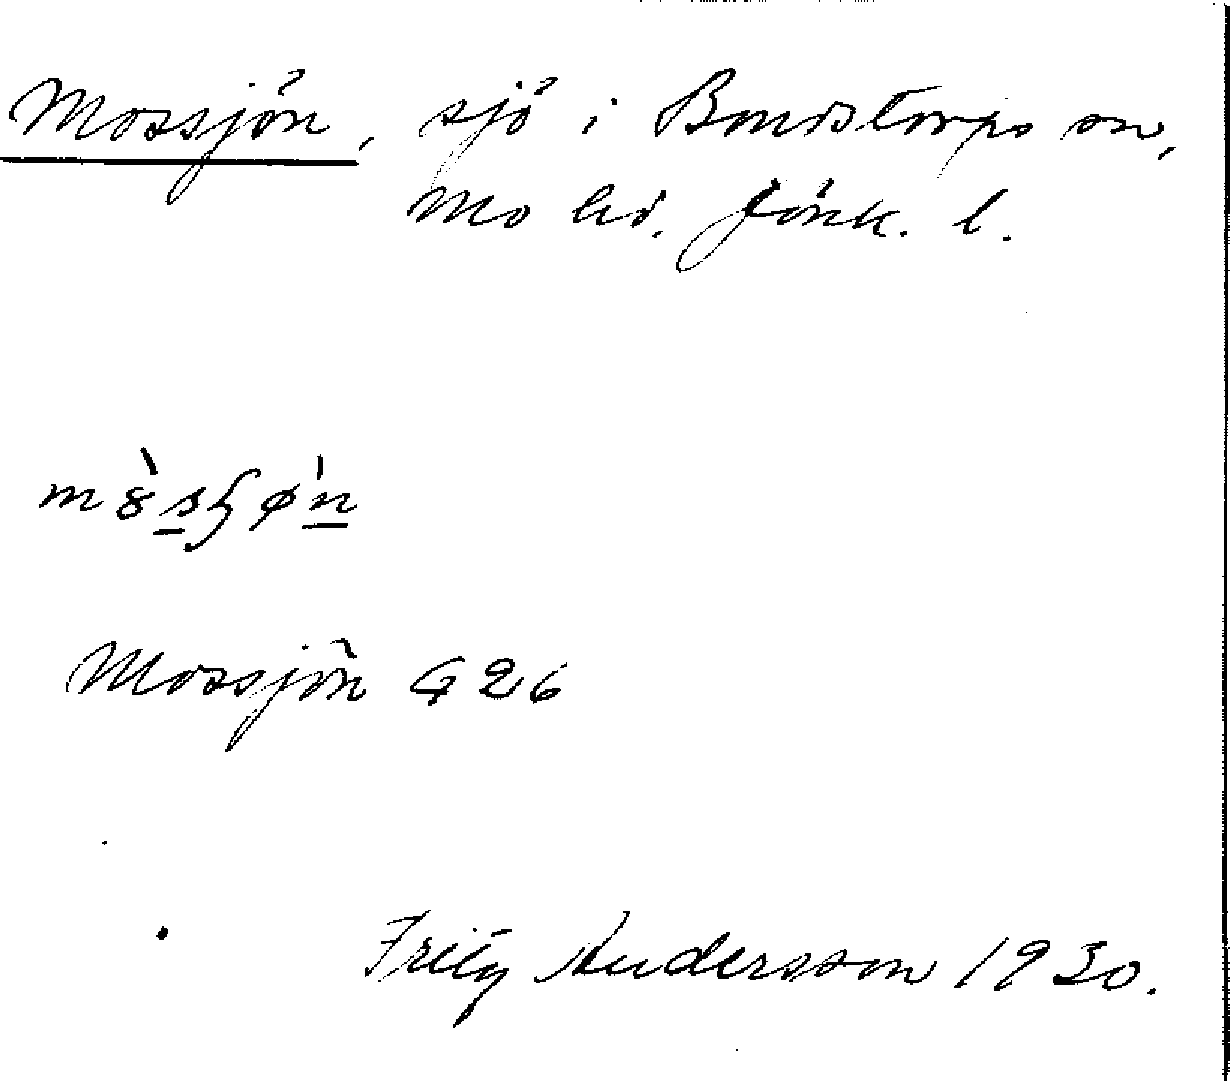 Mossjön, sjö i Bondstorps sn,
Mo hd. Jönk. l.
Mossjön G 26
Fritz Andersson 1930.